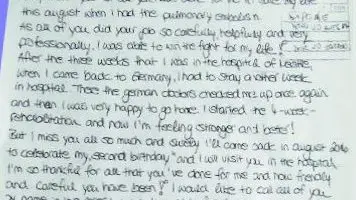 this august when I had the pulmonary embolism.
As all of you did your job so carefully, helpfully and very
professionally, I was able to win the fight for my life!
After the three weeks that I was in the hospital of Leicester,
when I came back to Germany, I had to stay another week
in hospital. There the german doctors checked me up once again
and then I was very happy to go home. I started the 4-week-
rehabilitation and now I'm feeling stronger and better!
But I miss you all so much and surely I'll come back in august 2016
to celebrate my "second birthday" and I will visit you in the hospital.
I'm so thankful for all that you've done for me and how friendly
and careful you have been! I would like to call all of you